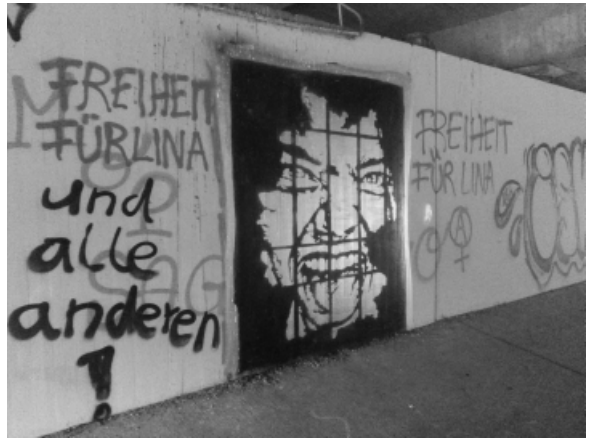 FREIHEIT
FÜR LINA
und
alle
anderen
!
FREIHEIT
FÜR LINA